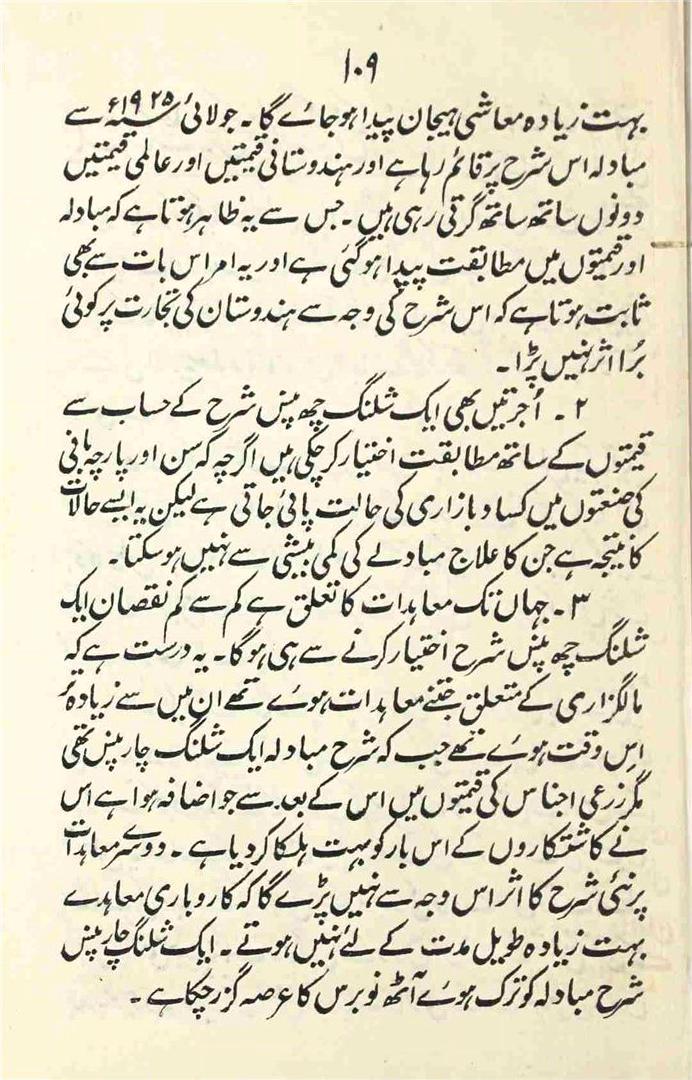 ۱۰۹
بہت زیادہ معاشی ہیجان پیدا ہو جائے گا۔ جولائی ۱۹۲۵ء سے
مبادلہ اس شرح پر قائم رہا ہے اور ہندوستانی قیمتیں اور عالمی قیمتیں
دونوں ساتھ ساتھ گرتی رہی ہیں۔ جس سے یہ ظاہر ہوتا ہے کہ مبادلہ
اور قیمتوں میں مطابقت پیدا ہو گئی ہے اور یہ امر اس بات سے بھی
ثابت ہوتا ہے کہ اس شرح کی وجہ سے ہندوستان کی تجارت پر کوئی
بُرا اثر نہیں پڑا۔
۲۔ اُجرتیں بھی ایک شلنگ چھ پنس شرح کے حساب سے
قیمتوں کے ساتھ مطابقت اختیار کر چکی ہیں اگرچہ کہ سن اور پارچہ بافی
کی صنعتوں میں کساد بازاری کی حالت پائی جاتی ہے لیکن یہ ایسے حالات
کا نتیجہ ہے جن کا علاج مبادلے کی کمی بیشی سے نہیں ہو سکتا۔
۳۔ جہاں تک معاہدات کا تعلق ہے کم سے کم نقصان ایک
شلنگ چھ پنس شرح اختیار کرنے سے ہی ہوگا۔ یہ درست ہے کہ
مالگزاری کے متعلق جتنے معاہدات ہوے تھے ان میں سے زیادہ
اِس وقت ہوے تھے جب کہ شرح مبادلہ ایک شلنگ چار پنس تھی
مگر زرعی اجناس کی قیمتوں میں اس کے بعد سے جو اضافہ ہوا ہے اس
نے کاشتکاروں کے اس بار کو بہت ہلکا کر دیا ہے۔ دوسرے معاہدات
پر نئی شرح کا اثر اس وجہ سے نہیں پڑے گا کہ کاروباری معاہدے
بہت زیادہ طویل مدت کے لئے نہیں ہوتے۔ ایک شلنگ چار پنس
شرح مبادلہ کو ترک ہوے آٹھ نو برس کا عرصہ گزر چکا ہے۔